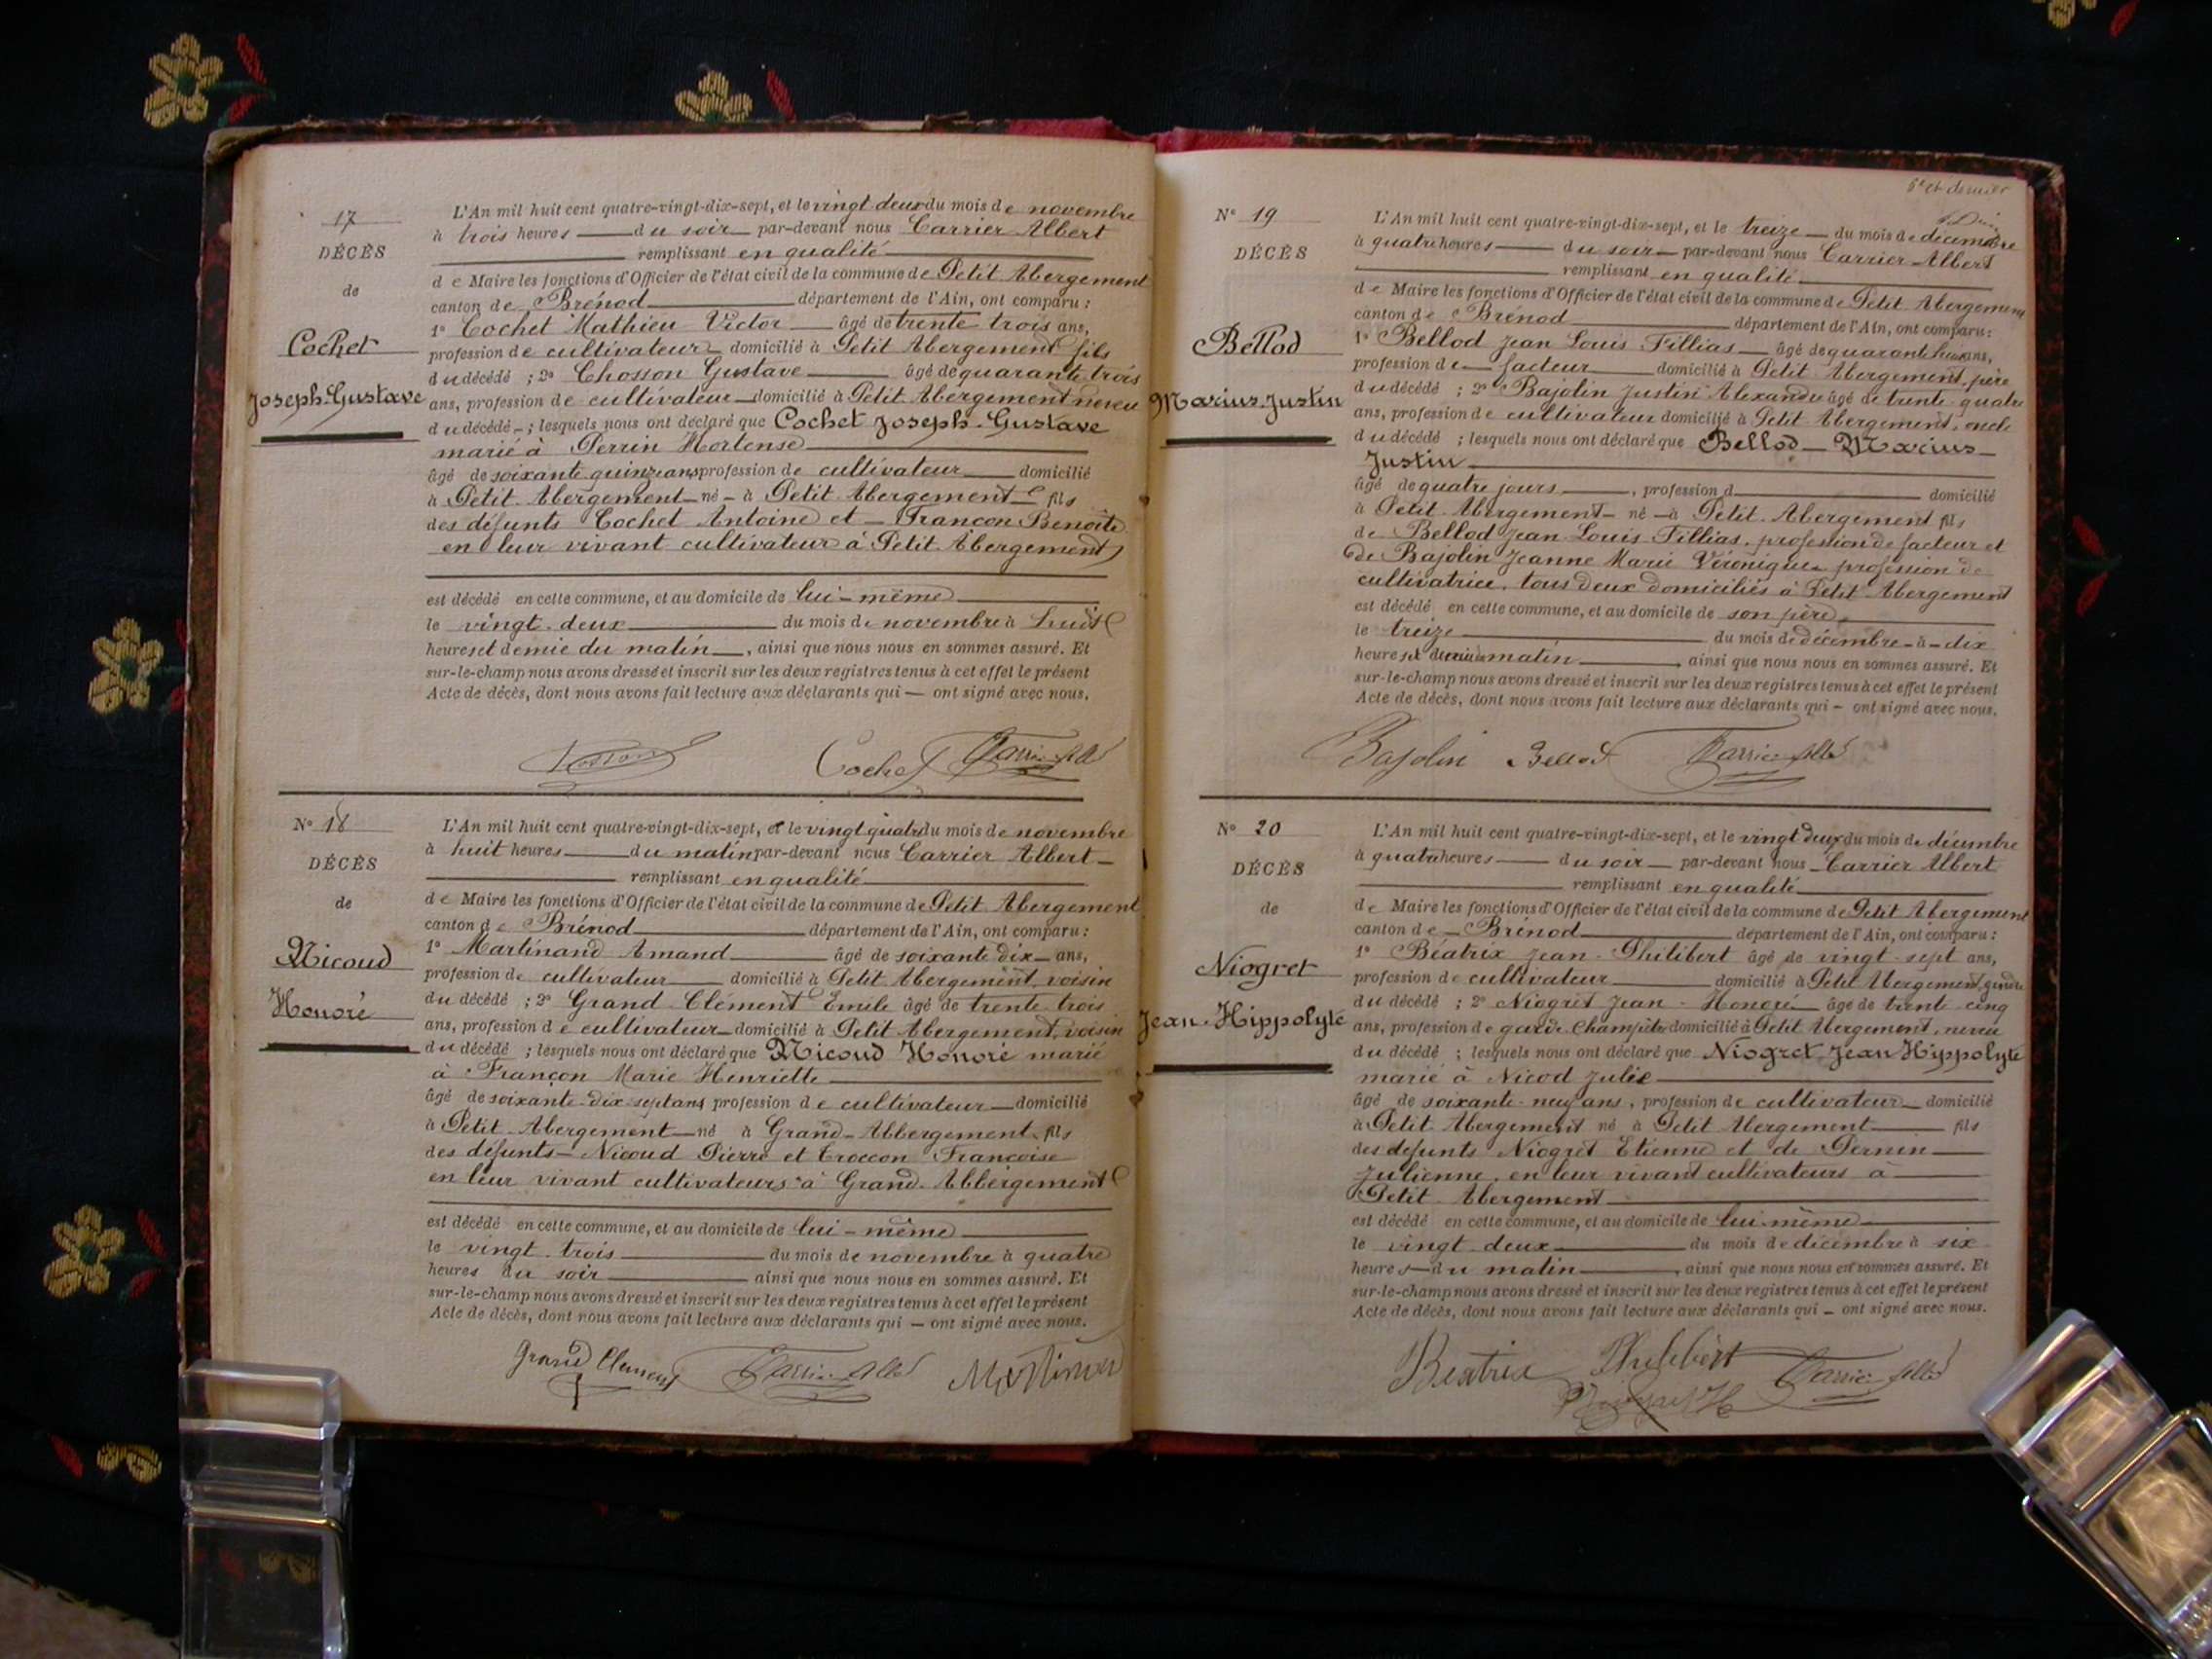 17
DÉCÈS
de
Cochet
Joseph-Gustave
L'An mil huit cent quatre-vingt-dix-sept, et le vingt deux du mois de novembre
à trois heures du soir par-devant nous Carrier Albert
remplissant en qualité
de Maire les fonctions d'Officier de l'état civil de la commune de Petit Abergement
canton de Brénod département de l'Ain, ont comparu :
1º Cochet Mathieu Victor âgé de trente trois ans,
profession de cultivateur domicilié à Petit Abergement fils
du décédé ; 2º Chosson Gustave âgé de quarante trois
ans, profession de cultivateur domicilié à Petit Abergement neveu
du décédé ; lesquels nous ont déclaré que Cochet Joseph-Gustave
marié à Perrin Hortense
âgé de soixante quinze ans profession de cultivateur domicilié
à Petit Abergement né à Petit Abergement fils
des défunts Cochet Antoine et Françon Benoîte
en leur vivant cultivateurs à Petit Abergement
est décédé en cette commune, et au domicile de lui-même
le vingt deux du mois de novembre à huit
heures et demie du matin, ainsi que nous nous en sommes assuré. Et
sur-le-champ nous avons dressé et inscrit sur les deux registres tenus à cet effet le présent
Acte de décès, dont nous avons fait lecture aux déclarants qui — ont signé avec nous.
Cochet
Nº 18
DÉCÈS
de
Nicoud
Honoré
L'An mil huit cent quatre-vingt-dix-sept, et le vingt quatre du mois de novembre
à huit heures du matin par-devant nous Carrier Albert
remplissant en qualité
de Maire les fonctions d'Officier de l'état civil de la commune de Petit Abergement
canton de Brénod département de l'Ain, ont comparu :
1º Martinand Amand âgé de soixante dix ans,
profession de cultivateur domicilié à Petit Abergement, voisin
du décédé ; 2º Grand Clément Emile âgé de trente trois
ans, profession de cultivateur domicilié à Petit Abergement, voisin
du décédé ; lesquels nous ont déclaré que Nicoud Honoré marié
à Françon Marie Henriette
âgé de soixante-dix-sept ans profession de cultivateur domicilié
à Petit Abergement né à Grand-Abbergement fils
des défunts Nicoud Pierre et Troccon Françoise
en leur vivant cultivateurs à Grand-Abbergement
est décédé en cette commune, et au domicile de lui-même
le vingt trois du mois de novembre à quatre
heures du soir ainsi que nous nous en sommes assuré. Et
sur-le-champ nous avons dressé et inscrit sur les deux registres tenus à cet effet le présent
Acte de décès, dont nous avons fait lecture aux déclarants qui — ont signé avec nous.
Grand Clement
6e et dernier
Nº 19
DÉCÈS
Bellod
Marius-Justin
L'An mil huit cent quatre-vingt-dix-sept, et le treize du mois de décembre
à quatre heures du soir par-devant nous Carrier Albert
remplissant en qualité
de Maire les fonctions d'Officier de l'état civil de la commune de Petit Abergement
canton de Brénod département de l'Ain, ont comparu :
1º Bellod Jean Louis Fillias âgé de quarante huit ans,
profession de facteur domicilié à Petit Abergement, père
du décédé ; 2º Bajolin Justin Alexandre âgé de trente-quatre
ans, profession de cultivateur domicilié à Petit Abergement, oncle
du décédé ; lesquels nous ont déclaré que Bellod Marius
Justin
âgé de quatre jours, profession d domicilié
à Petit Abergement né à Petit Abergement fils
de Bellod Jean Louis Fillias, profession de facteur et
de Bajolin Jeanne Marie Véronique profession de
cultivatrice, tous deux domiciliés à Petit Abergement
est décédé en cette commune, et au domicile de son père
le treize du mois de décembre à dix
heures du matin, ainsi que nous nous en sommes assuré. Et
sur-le-champ nous avons dressé et inscrit sur les deux registres tenus à cet effet le présent
Acte de décès, dont nous avons fait lecture aux déclarants qui — ont signé avec nous.
Bajolin Bellod
Nº 20
DÉCÈS
de
Niogret
Jean-Hippolyte
L'An mil huit cent quatre-vingt-dix-sept, et le vingt deux du mois de décembre
à quatre heures du soir par-devant nous Carrier Albert
remplissant en qualité
de Maire les fonctions d'Officier de l'état civil de la commune de Petit Abergement
canton de Brénod département de l'Ain, ont comparu :
1º Béatrix Jean-Philibert âgé de vingt-sept ans,
profession de cultivateur domicilié à Petit Abergement, gendre
du décédé ; 2º Niogret Jean-Honoré âgé de trente-cinq
ans, profession de garde champêtre domicilié à Petit Abergement, neveu
du décédé ; lesquels nous ont déclaré que Niogret Jean Hippolyte
marié à Nicod Julie
âgé de soixante-neuf ans, profession de cultivateur domicilié
à Petit Abergement né à Petit Abergement fils
des défunts Niogret Etienne et de Pernin
Julienne, en leur vivant cultivateurs à
Petit Abergement
est décédé en cette commune, et au domicile de lui-même
le vingt deux du mois de décembre à six
heures du matin, ainsi que nous nous en sommes assuré. Et
sur-le-champ nous avons dressé et inscrit sur les deux registres tenus à cet effet le présent
Acte de décès, dont nous avons fait lecture aux déclarants qui — ont signé avec nous.
Béatrix Philibert